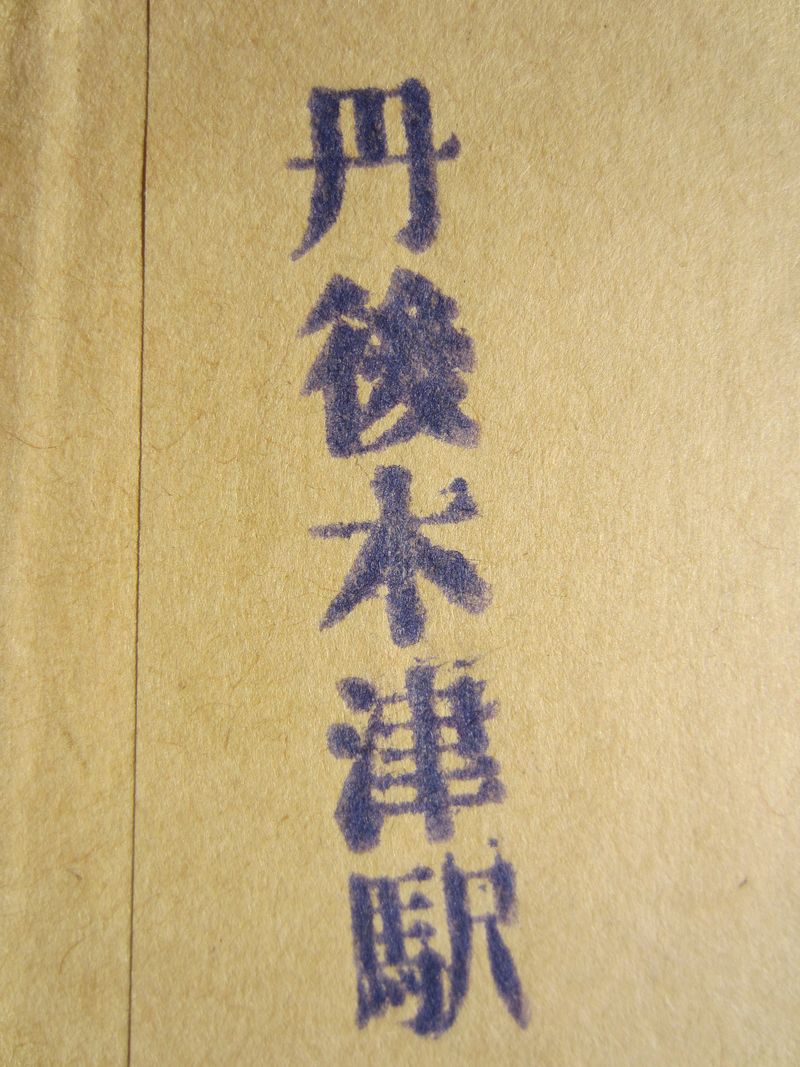 丹後木津駅